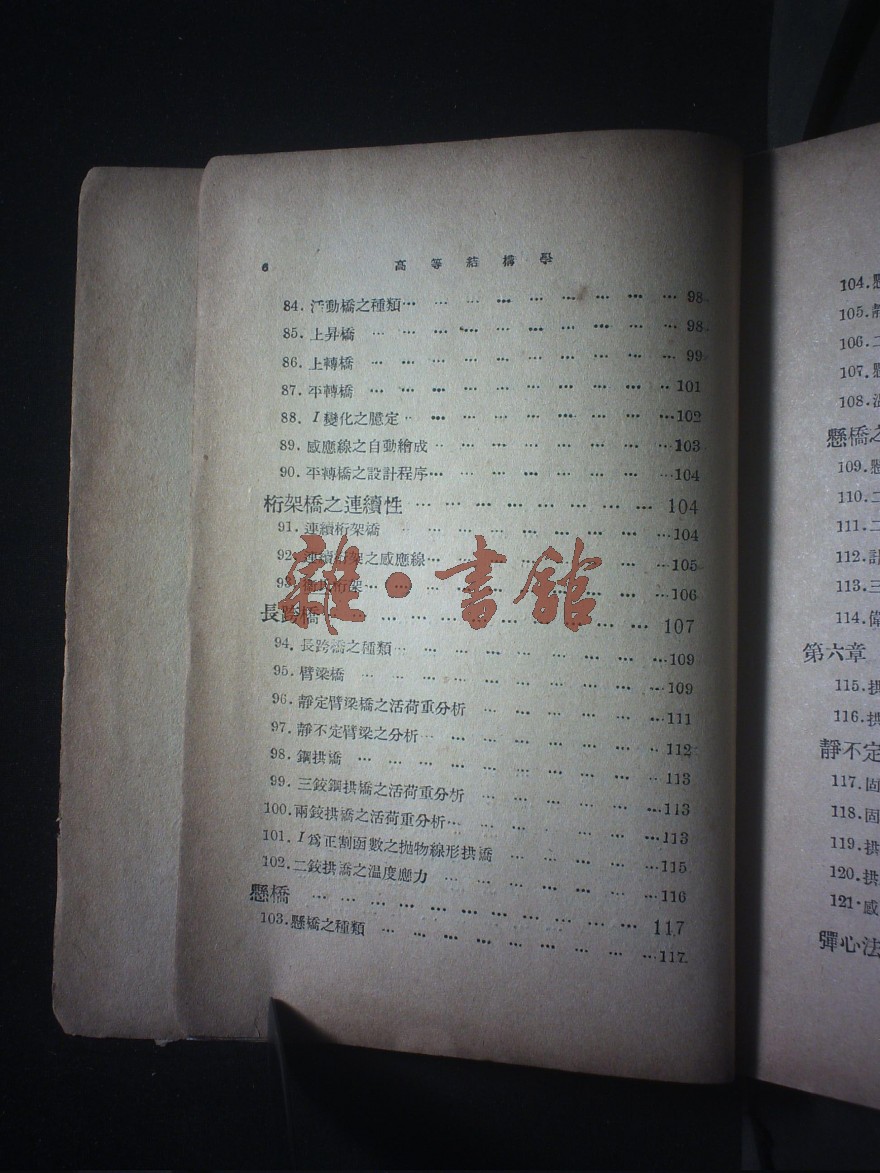 6 高等結構學
84. 活動橋之種類… … … … … … … … … 98
85. 上昇橋 … … … … … … … … … 98
86. 上轉橋 … … … … … … … … … 99
87. 平轉橋 … … … … … … … … 101
88. I 變化之臆定 … … … … … … … 102
89. 感應線之自動繪成 … … … … … … … 103
90. 平轉橋之設計程序… … … … … … … 104
桁架橋之連續性 … … … … … … … … 104
91. 連續桁架橋 … … … … … … … 104
92. 連續桁架之感應線… … … … … … … 105
93. 桁架… … … … … … … … 106
長跨橋 … … … … … … … … … 107
94. 長跨橋之種類… … … … … … … … 109
95. 臂梁橋 … … … … … … … … … 109
96. 靜定臂梁橋之活荷重分析 … … … … … … 111
97. 靜不定臂梁之分析… … … … … … … 112
98. 鋼拱橋 … … … … … … … … … 113
99. 三鉸鋼拱橋之活荷重分析 … … … … … … 113
100. 兩鉸拱橋之活荷重分析… … … … … … 113
101. I 爲正割函數之拋物線形拱橋 … … … … … 115
102. 二鉸拱橋之溫度應力 … … … … … … 116
懸橋 … … … … … … … … … … 117
103. 懸橋之種類 … … … … … … … … 117
雜·書館
104. 懸
105. 靜
106. 二
107. 懸
108. 溫
懸橋之
109. 懸
110. 二
111. 二
112. 計
113. 三
114. 偉
第六章
115. 拱
116. 拱
靜不定
117. 固
118. 固
119. 拱
120. 拱
121. 感
彈心法